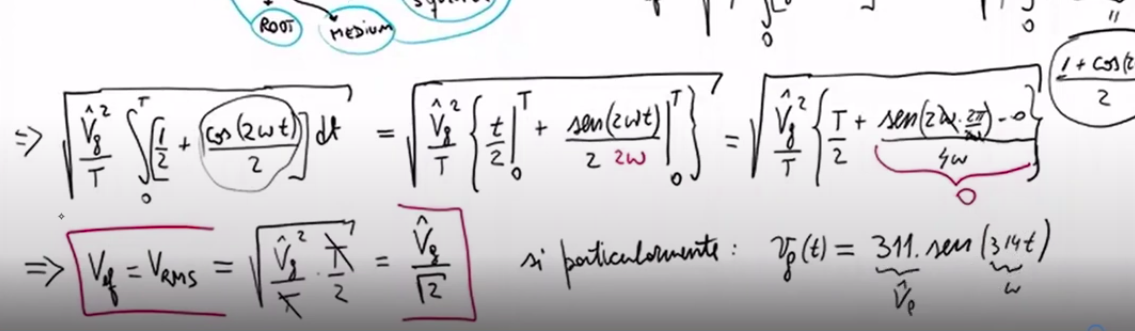 squar
ROOT MEDIUM
0 0 =
1 + cos(2
2
=> √( V̂g²/T ∫₀ᵀ [1/2 + cos(2ωt)/2] dt ) = √( V̂g²/T { t/2 |₀ᵀ + sen(2ωt)/(2 2ω) |₀ᵀ } ) = √( V̂g²/T { T/2 + (sen(2ω·2π/ω) - 0)/4ω } )
0
=> Vef = VRMS = √( V̂g²/T · T/2 ) = V̂g/√2 si particularmente: Vg(t) = 311. sen(314t)
V̂p ω